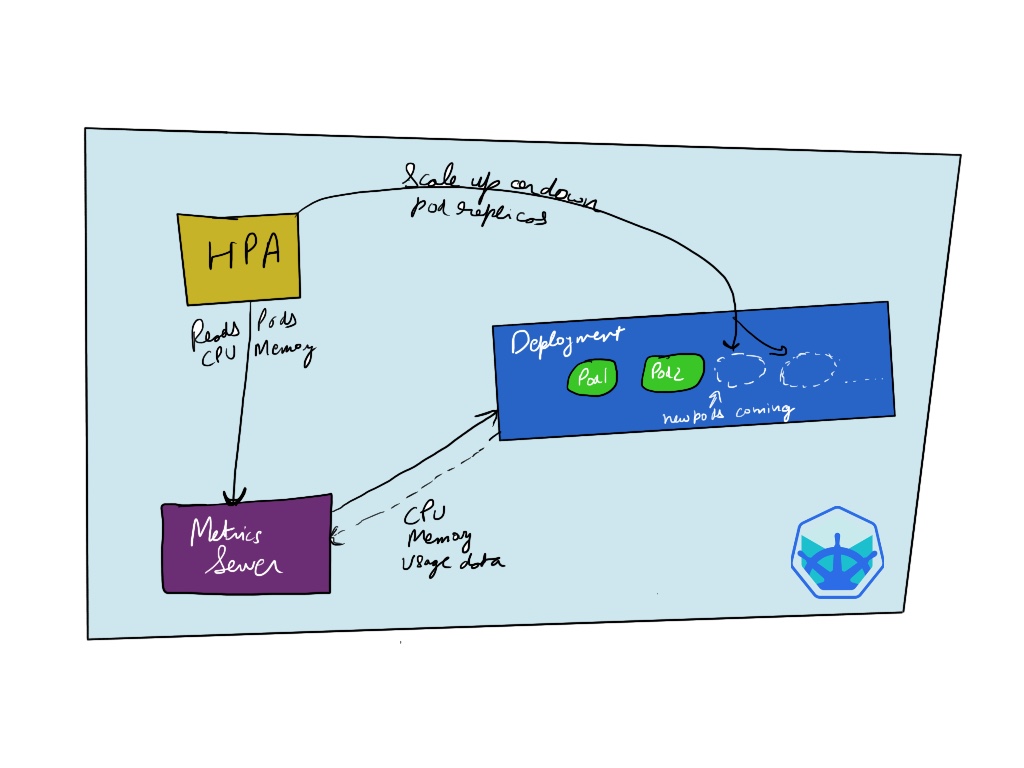 Scale up or down
pod replicas
HPA
Reads Pods
CPU Memory
Deployment
Pod1
Pod2
new pods coming
Metrics
Server
CPU
Memory
usage data